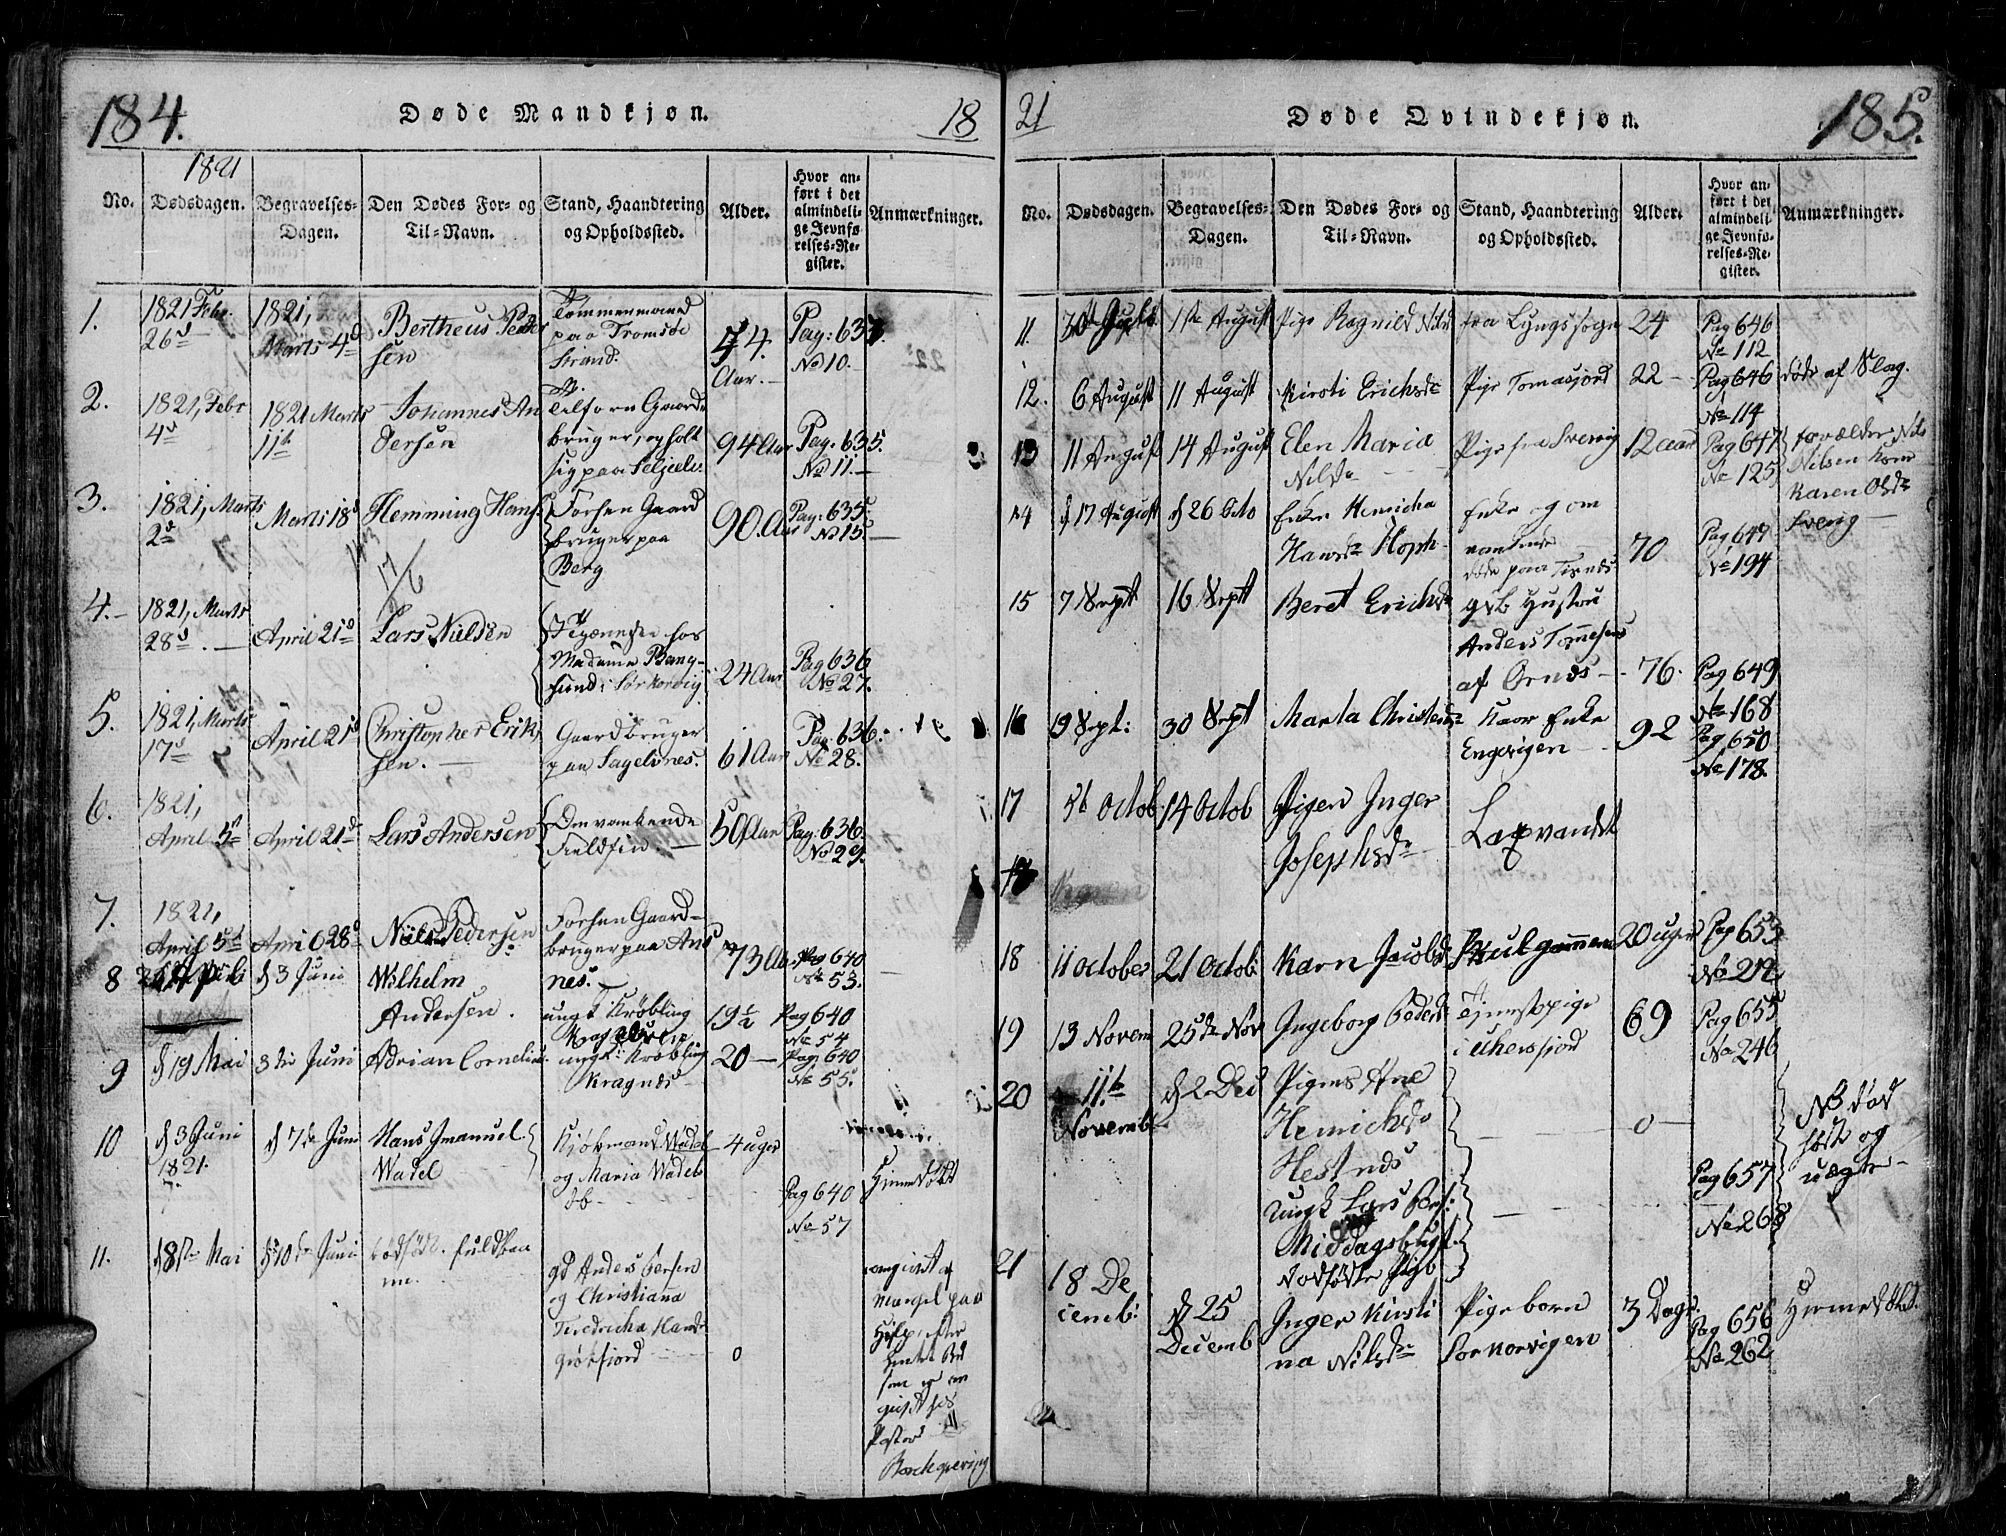 184.
Døde Mandkjøn.
18
1821
No.
Dødsdagen.
Begravelses-
Dagen.
Den Dødes For- og
Til-Navn.
Stand, Haandtering
og Opholdssted.
Alder.
Hvor an-
ført i det
almindeli-
ge Jevnfø-
relses-Re-
gister.
Anmærkninger.
1.
1821 Febr.
26d
1821,
Marts 4d
Bertheus Peder
sen
Tømmermand
paa Tromsøe
Strand.
54.
Aar.
Pag: 637.
No 10.
2.
1821, Febr
4d
1821 Marts
11te
Johannes An
dersen
Tilforn Gaard
bruger, opholt
sig paa
94 Aar
Pag. 635.
No 11.
3.
1821, Marts
2d
Marts 18d
Hemming Hans
Forhen Gaard
bruger paa
Berg
90. Aar
Pag: 635.
No 15.
4.
1821, Marts
28d.
April 21d
Lars Nielsen
hos
Madame Bang
24 Aar
Pag 636
No 27.
5.
1821, Marts
17d
April 21d
Christopher Erik
sen.
Gaardbruger
paa Sagelvnes.
61 Aar
Pag: 636.
No 28.
6.
1821,
April 5d
April 21d
Lars Andersen
Omvankende
Fieldfin
50 Aar
Pag. 636.
No 29.
7.
1821,
April 5d
April 28d
Niels Pedersen
Forhen Gaard-
bruger paa Ans
nes.
73 Aar
Pag 640
No 53.
8
d 3 Juni
Wilhelm
Andersen.
ungk Krøbling
19½
Pag 640
No 54
9
d 19 Mai
3die Juni
Adrian Cornelius
ungk: Krøbling
Kragnes
20
Pag. 640
No 55.
10
d 3 Juni
1821.
d 7de Juni
Hans Imanuel.
Wadel
Kjøbmand Wadel
og Maria Wadels
db
4 uger
Pag 640
No 57
Hjemedøbt
11.
d 8de Mai
d 10de Juni
dødfødt. fuldbaa
rne.
gd Anders Persen
og Christiana
Fredricha Hansd
0
omqvist af
Mangel paa
Hjelp efter
21
Døde Qvindekjøn.
185.
No.
Dødsdagen.
Begravelses-
Dagen.
Den Dødes For- og
Til-Navn.
Stand, Haandtering
og Opholdssted.
Alder.
Hvor an-
ført i det
almindeli-
ge Jevnfø-
relses-Re-
gister.
Anmærkninger.
11.
1ste August
Pige Ragnild Nilsd
fra Lyngs sogn
24
Pag 646
No 112
12.
6 August
11 August
Kirsti Erichsdr
Pige Tomasjord
22
Pag 646
No 114
døde af Slag.
13
11 August
14 August
Elen Maria
Nilsdr
Pige fra Sverrig
12 aar
Pag 647
No 125
forælder Nils
Nilsen kone
Karen Olsdr
Sverig
14
d 17 August
d 26 Octo
Enke Henricha
Hansdr Hoph
Enke og om
vankende
døde paa
70
Pag 647
No 194
15
7 Septt
16 Septt
Beret Erichsdr
gsb Hustru
Anders Tommesens
af Ornes
76.
Pag 649
No 168
16
19 Sept:
30 Sept
Marta Christensdr
Enke
Engvigen
92
Pag 650
No 178.
17
5t Octob
14 Octob
Pigen Inger
Josephsdr
Laxvandet
18
11 October
21 Octob
Karn Jacobsd
Skulgammen
20 uger
Pag 653
No 212
19
13 Novem
25de Nov
Ingeborg Pedersd
Tjenstepige
i Ullersfjord
69
Pag 655
No 246
20
11te
Novemb
d 2 Dec
Pigens Ane
Henrichsdr
Hestnes
ungk Lars Pers:
Middagsbugt
dødfødte Pigb
0
Pag 657
No 268
NB død
født og
uægte
21
18 De
cemb:
d 25
Decemb
Inger Kirsti
na Nilsdr
Pigebarn
Sorkorvigen
3 Dage
Pag 656
No 262
Hjemedøbt.